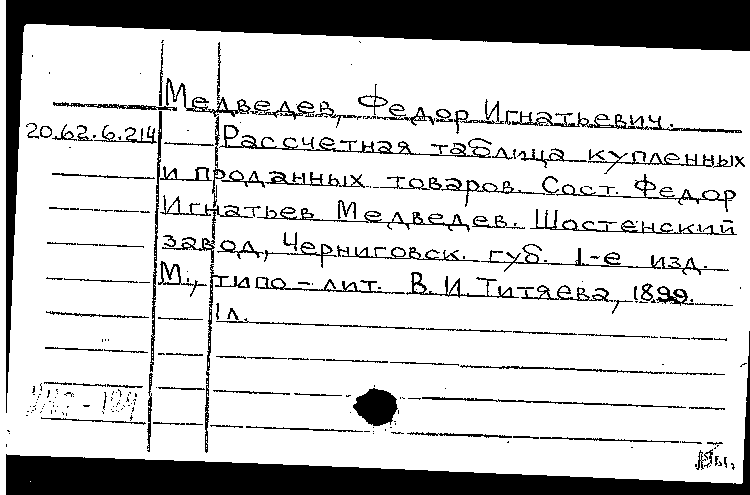 Медведев, Федор Игнатьевич.
20.62.6.214 Рассчетная таблица купленных
и проданных товаров. Сост. Федор
Игнатьев Медведев. Шостенский
завод, Черниговск. губ. 1-е изд.
М., типо-лит. В. И. Титяева, 1899.
1 л.